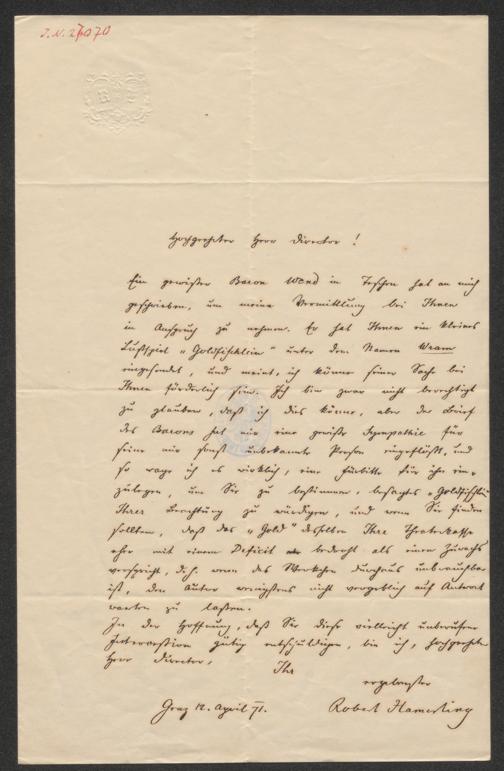 J. N. 27070
Hochgeehrter Herr Director!
Ein gewisser Baron Wend in Teschen hat an mich
geschrieben, um meine Vermittlung bei Ihnen
in Anspruch zu nehmen. Er hat Ihnen ein kleines
Lustspiel „Goldfischlein“ unter dem Namen Wram
eingesendet, und meint, ich könne seiner Sache bei
Ihnen förderlich sein. Ich bin zwar nicht berechtigt
zu glauben, daß ich dies könne, aber der Brief
des Barons hat mir eine gewisse Sympathie für
seine mir sonst unbekannte Person eingeflößt, und
so wage ich es wirklich, eine Fürbitte für ihn ein-
zulegen, um Sie zu bestimmen, besagtes „Goldfischlein“
Ihrer Beachtung zu würdigen, und wenn Sie finden
sollten, daß das „Gold“ desselben Ihre Theaterkasse
eher mit einem Deficit bedroht als einen Zuwachs
verspricht, d. h. wenn das Werkchen durchaus unbrauchbar
ist, den Autor wenigstens nicht vergeblich auf Antwort
warten zu lassen.
In der Hoffnung, daß Sie diese vielleicht unberufene
Intercession gütig entschuldigen, bin ich, hochgeehrter
Herr Director,
Ihr
ergebenster
Graz 12. April 71.
Robert Hamerling